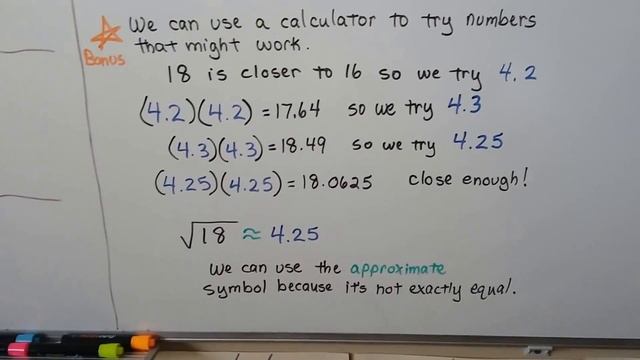 We can use a calculator to try numbers
that might work.
Bonus
18 is closer to 16 so we try 4.2
(4.2)(4.2) = 17.64 so we try 4.3
(4.3)(4.3) = 18.49 so we try 4.25
(4.25)(4.25) = 18.0625 close enough!
√18 ≈ 4.25
We can use the approximate
symbol because it's not exactly equal.